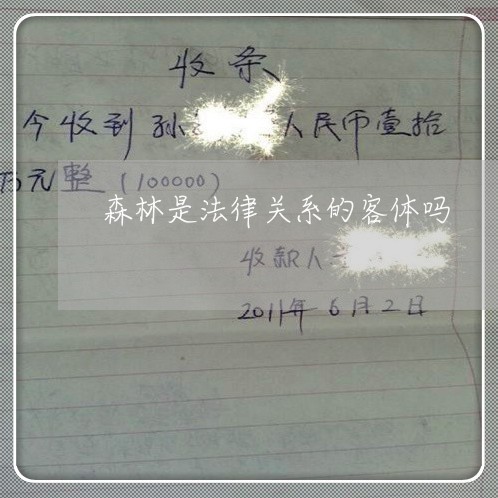 收条
今收到孙 人民币壹拾
万元整(100000)
森林是法律关系的客体吗
收款人
2011年6月2日